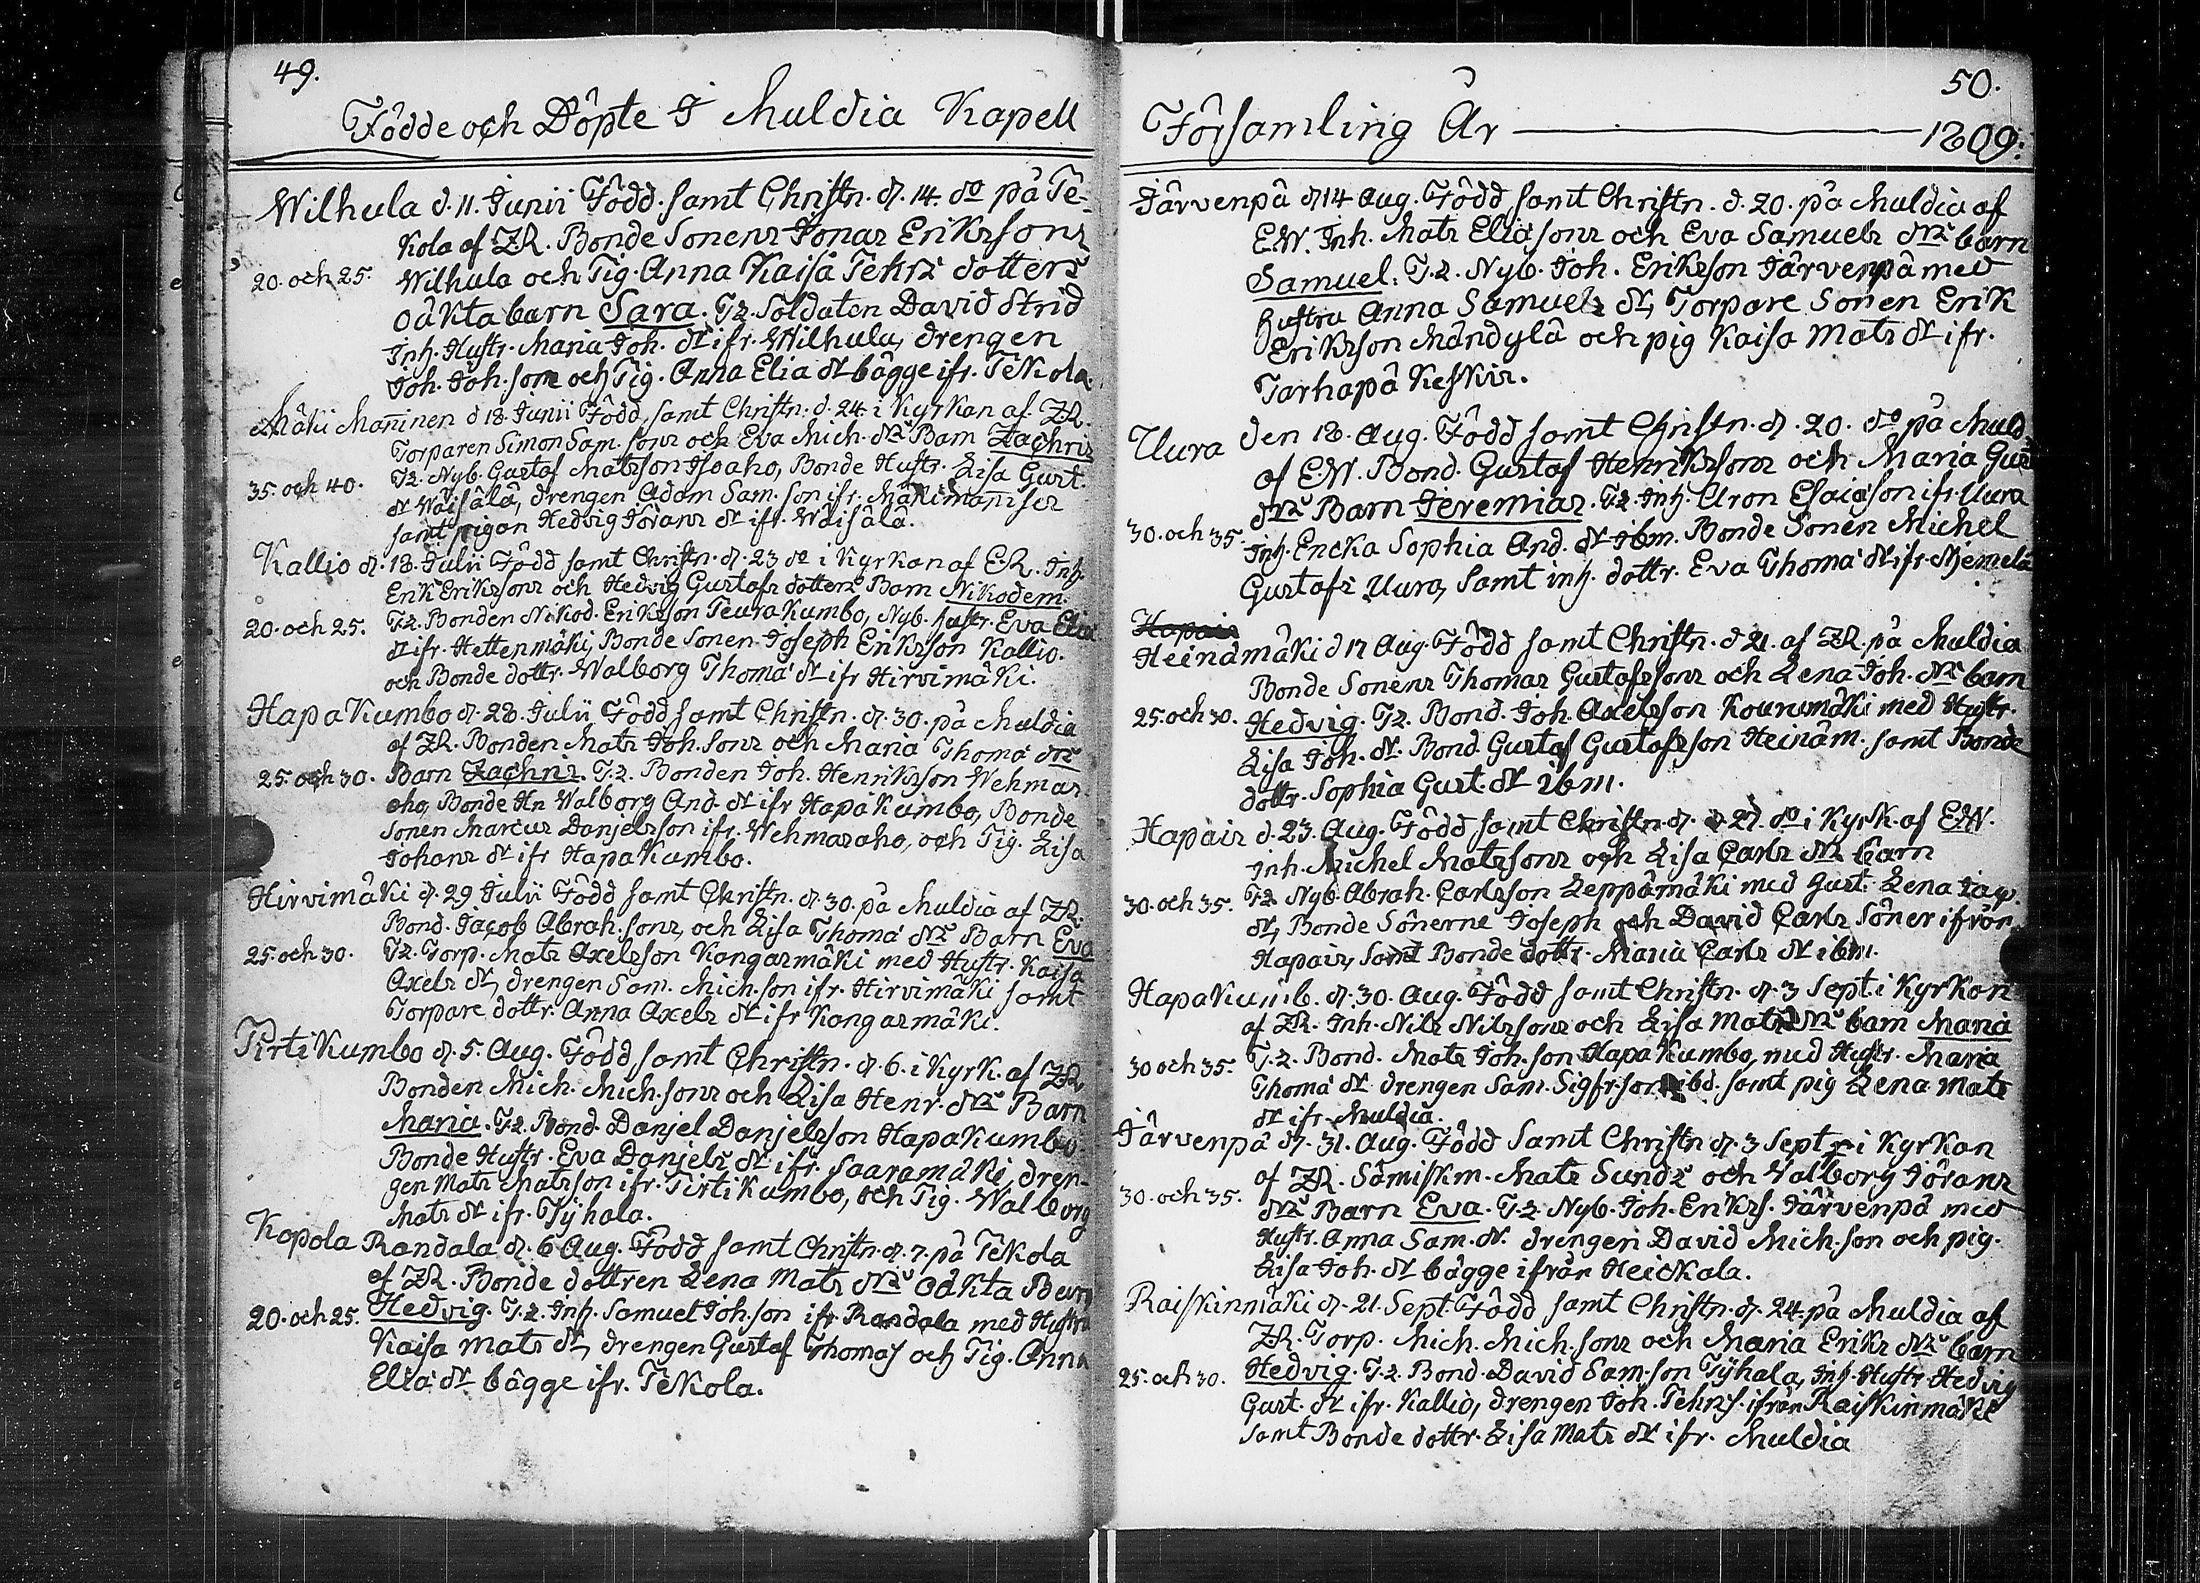 49.
Födde och Döpte I Muldia Kapell
Wilhula d. 11. Junii Född. samt Christn. d. 14. do på Te-
kola af ZR. Bonde Sonens Jonas Eriksons
20. och 25. Wilhula och Pig. Anna Kaisa Pehrs dotters
oäkta barn Sara. T2. Soldaten David Strid
Inh. Hustr. Maria Joh. dr ifr. Wilhula, drengen
Joh. Joh. son och Pig. Anna Elia dr bägge ifr. Tekola.
Mäki Maninen d 18. Junii Född samt Christn. d. 24. i Kyrkan af ZR.
Torparen Simon Sam. sons och Eva Mich. drs Barn Zachris
35. och 40. T2. Nyb. Gustaf Matsson Isoaho, Bonde Hustr. Lisa Gust.
dr Wäisälä, drengen Adam Sam. son ifr. Mäkimanisen
samt pigan Hedvig Jörans dr ifr. Wäisälä.
Kallio d. 18. Julii Född samt Christn. d. 23 do i Kyrkan af E.R. Inh.
Erik Eriksons och Hedvig Gustafs dotters Barn Nikodem.
20. och 25. T2. Bonden Nikod. Erikson Teurakumbo, Nyb. hustr. Eva Elia
dr ifr. Hettenmäki, Bonde Sonen Joseph Erikson Kallio.
och Bonde dottr. Walborg Thoma dr ifr Hirvimäki.
Hapakumbo d. 28. Julii Född samt Christn. d. 30. på Muldia
af ZR. Bonden Mats Joh. sons och Maria Thoma drs
25. och 30. Barn Zachris. T2. Bonden Joh. Henrikson Wehmas-
aho, Bonde Hn Walborg And. dr ifr Hapakumbo, Bonde
Sonen Marcus Danjelsson ifr. Wehmasaho, och Pig. Lisa
Johans dr ifr Hapakumbo.
Hirvimäki d. 29 Julii Född samt Christn. d. 30. på Muldia af ZR.
Bond. Jacob Abrah. sons, och Lisa Thoma drs Barn Eva
25. och 30. T2. Torp. Mats Axelsson Kangasmäki med Hustr. Kaisa
Axels dr, drengen Sam. Mich. son ifr. Hirvimäki samt
Torpare dottr. Anna Axels dr ifr Kangasmäki.
Pirtikumbo d. 5. Aug. Född samt Christn. d. 6. i Kyrk. af ZR
Bonden Mich. Mich. sons och Lisa Henr. drs Barn
Maria. T2. Bond. Danjel Danjelsson Hapakumbo
Bonde Hustr. Eva Danjels dr ifr. Saaramäki, dren-
gen Mats Matsson ifr. Pirtikumbo, och Pig. Walborg
Mats dr ifr. Pyhala.
Kopola Randala d. 6 Aug. Född samt Christn. d. 7. på Tekola
af ZR. Bonde dottren Lena Mats drs oäkta Barn
20. och 25. Hedvig. T2. Inh. Samuel Joh. son ifr Randala med Hustru
Kaisa Mats dr, drengen Gustaf Thomas och Pig. Anna
Elia dr bägge ifr. Tekola.
50.
Församling År 1809.
Järvenpä d 14 Aug. Född samt Christn. d. 20. på Muldia af
E.W. Inh. Mats Elia sons och Eva Samuels drs barn
Samuel. T.2. Nyb. Joh. Erikson Järvenpä med
hustru Anna Samuels dr, Torpare Sonen Erik
Erikson Mändylä och pig Kaisa Mats dr ifr.
Tarhapä Keskis.
Uura den 18. Aug. Född samt Christn. d. 20. do på Muld.
af E.W. Bond. Gustaf Henriksons och Maria Gus
drs Barn Jeremias. T2. Inh. Aron Esaiason ifr. Uura
30. och 35. Inh. Encka Sophia And. dr ibm. Bonde Sonen Michel
Gustafs Uura, samt inh. dottr. Eva Thoma dr ifr. Hjemelä
Heinämäki d 17 Aug. Född samt Christn. d 21. af ZR. på Muldia
Bonde Sonens Thomas Gustafssons och Lena Joh. drs barn
25. och 30. Hedvig. T2. Bond. Joh. Axelsson Kourumäki med Hustr.
Lisa Joh. dr. Bond. Gustaf Gustafsson Heinäm. samt Bonde
dottr. Sophia Gust. dr ibm.
Hapais d. 23. Aug. Född samt Christn. d. 27. do i Kyrk. af E.W.
Inh. Michel Matssons och Lisa Carls drs barn
30. och 35. T2. Nyb. Abrah. Carlsson Leppämäki med Gust. Lena Jac.
dr, Bonde Sönerne Joseph och David Carls Söner ifrån
Hapais, samt Bonde dottr. Maria Carls dr ibm.
Hapakumb. d. 30. Aug. Född samt Christn. d. 3 Sept. i Kyrkan
af ZR. Inh. Nils Nilssons och Lisa Mats drs barn Maria
30 och 35. T.2. Bond. Mats Joh. son Hapakumbo, med Hustr. Maria
Thoma dr drengen Sam. Sigfr. son ibd. samt pig Lena Mats
dr ifr. Muldia.
Järvenpä d. 31. Aug. Född Samt Christn d. 3 Sept. i Kyrkan
af ZR. Sämiskm. Mats Sunds och Valborg Jörans
30. och 35. drs Barn Eva. T.2. Nyb. Joh. Eriks. Järvenpä med
Hustr. Anna Sam. dr. drengen David Mich. son och pig.
Lisa Joh. dr bägge ifrån Heickala.
Raiskinmäki d. 21. Sept. Född samt Christn. d. 24. på Muldia af
ZR. Torp. Mich. Mich. sons och Maria Eriks drs barn
25. och 30. Hedvig. T.2. Bond. David Sam. son Pyhala, Inh. Hustr. Hedvig
Gust. dr ifr. Kallio, drengen Joh. Pehrs. ifrån Raiskinmäki
samt Bonde dottr. Lisa Mats dr ifr. Muldia